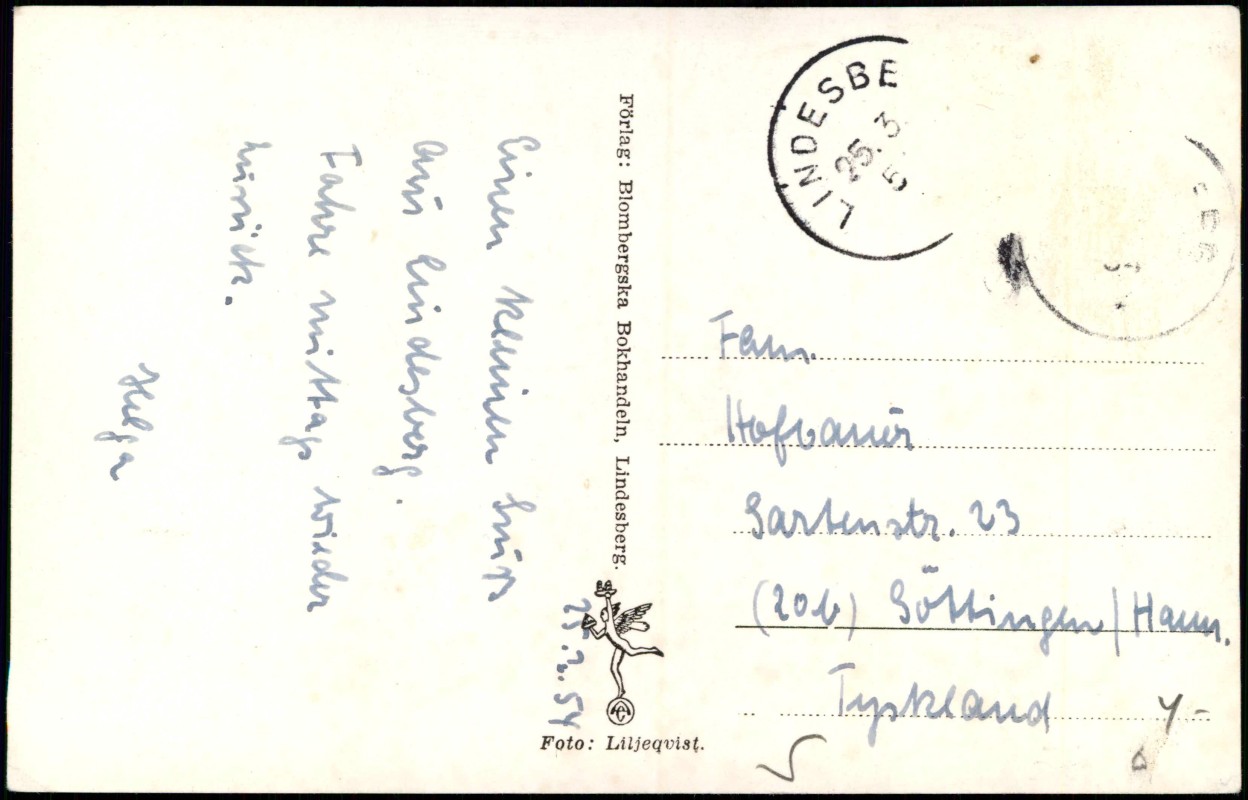 25.3.54
Einen kleinen Gruß
aus Lindesberg.
Fahre mittags wieder
zurück.
Helga
Förlag: Blombergska Bokhandeln, Lindesberg.
Foto: Liljeqvist.
LINDESBE
25.3
5
Fam.
Hofbauer
Gartenstr. 23
(20b) Göttingen/Hann.
Tyskland